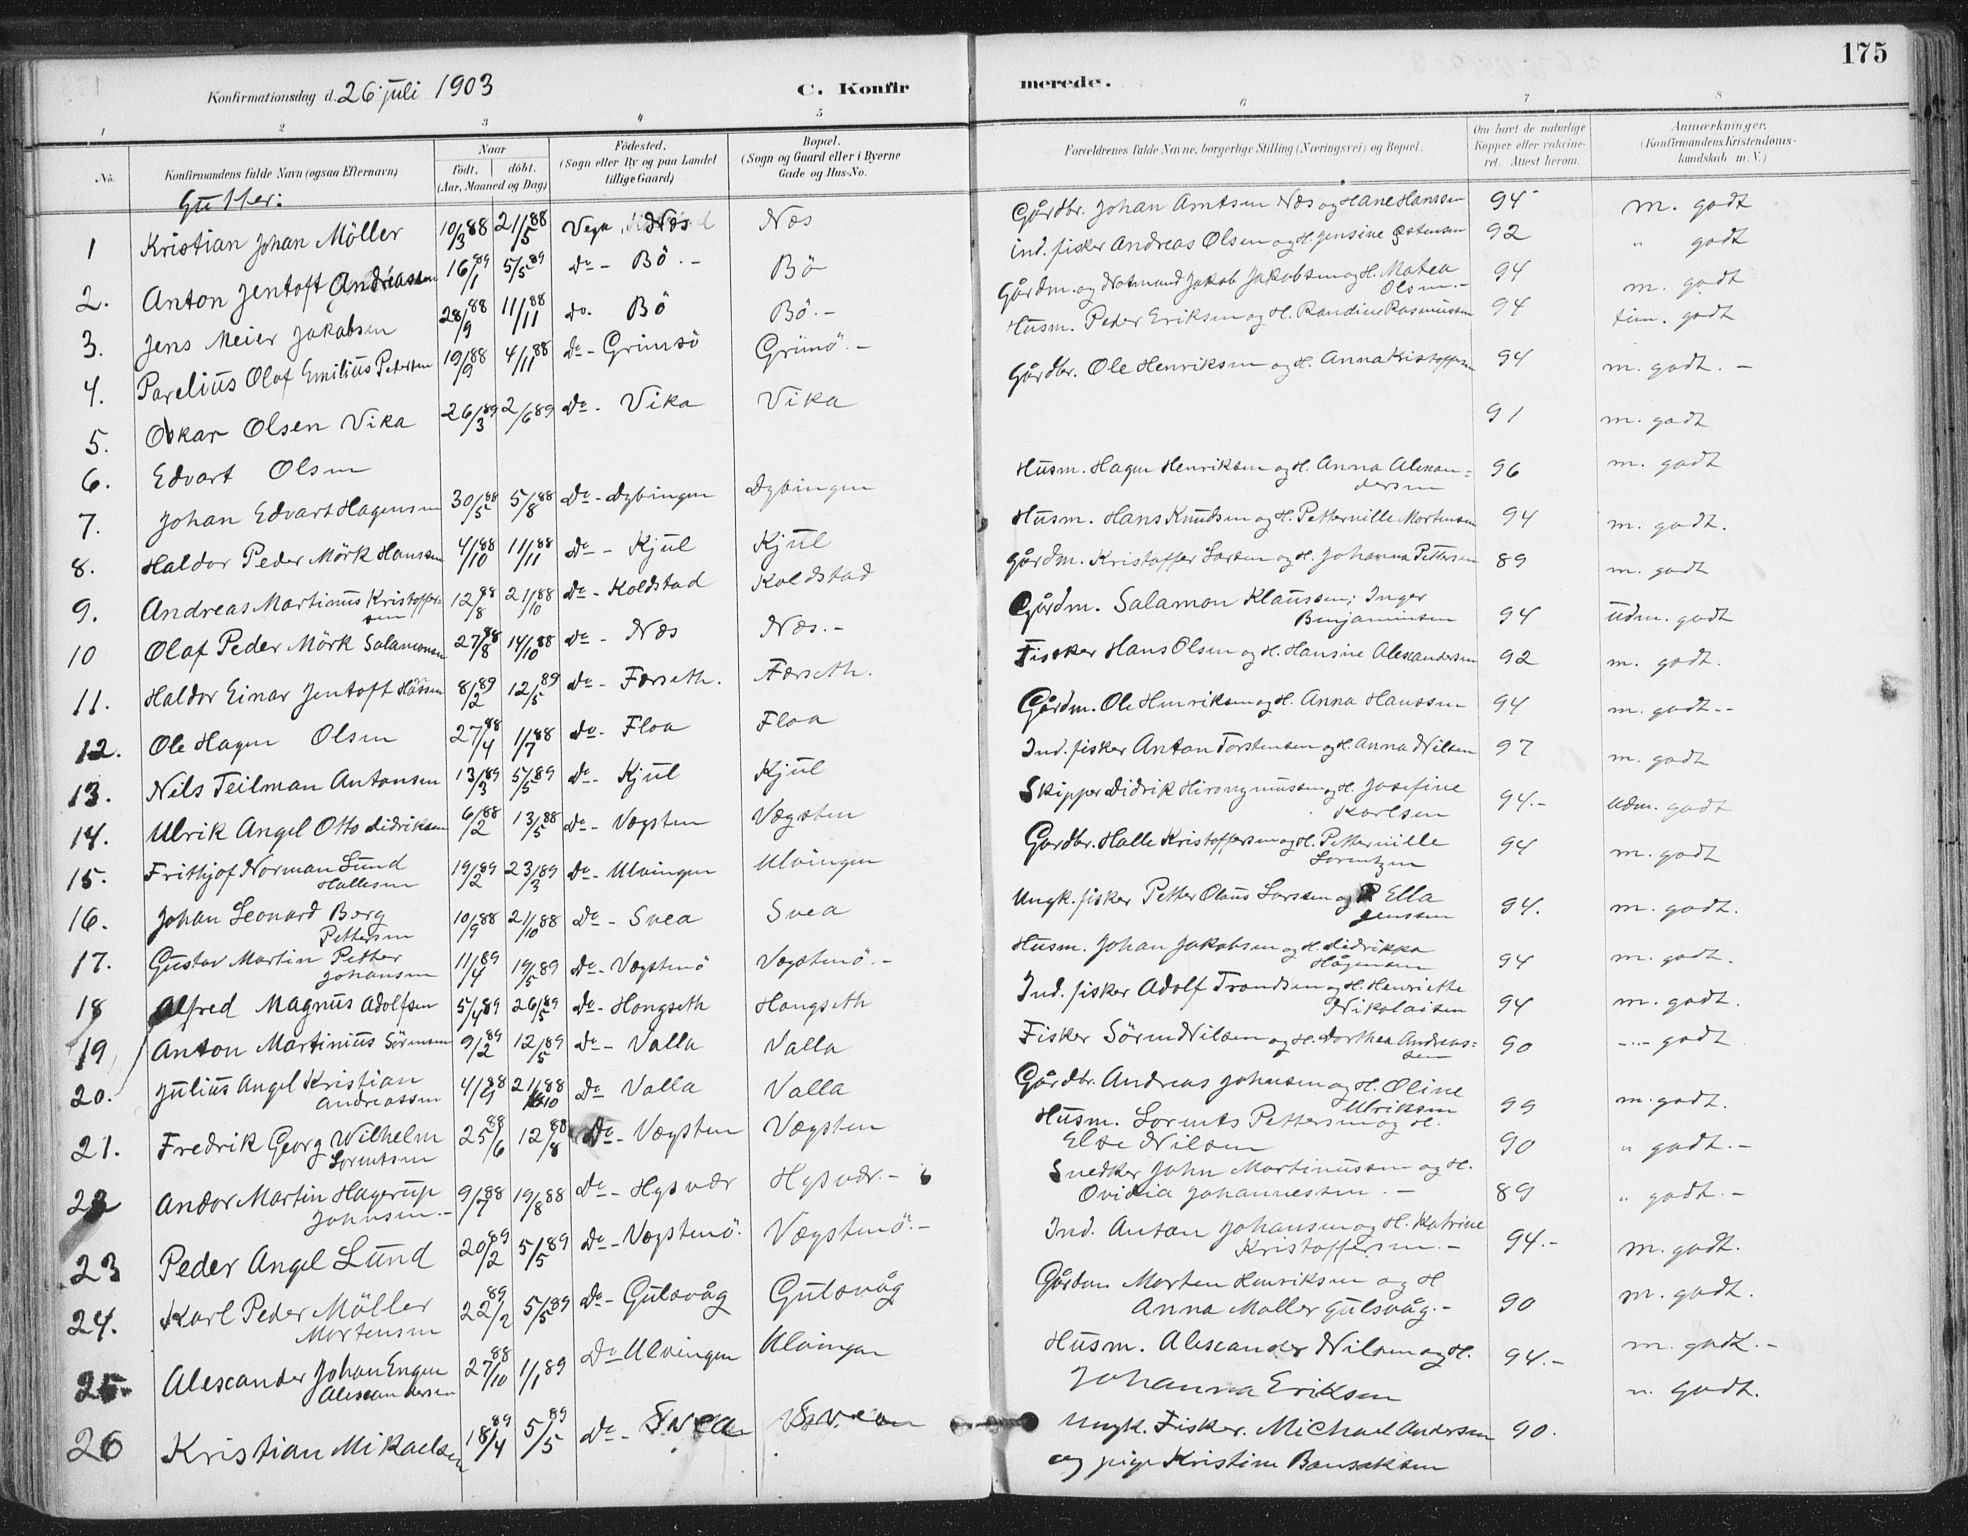 175
Konfirmationsdag d. 26 juli 1903
C. Konfirmerede.
1 2 3 4 5 6 7 8
No.
Konfirmandens fulde Navn (ogsaa Efternavn)
Naar
födt. döbt.
(Aar, Maaned og Dag)
Födested.
(Sogn eller By og paa Landet tillige Gaard)
Bopæl.
(Sogn og Gaard eller i Byerne Gade og Hus-No.
Forældrenes fulde Navne, borgerlige Stilling (Næringsvei) og Bopæl.
Om havt de naturlige Kopper eller vaccineret. Attest herom.
Anmærkninger.
(Konfirmandens Kristendomskundskab m. V.)
Gutter:
1 Kristian Johan Möller 10/3 88 21/5 88 Vega Næs Næs Gårdbr. Johan Arntsen Næs og Hane Hanssen 94 m. godt
2. Anton Jentoft Andreassen 16/1 89 5/5 89 Do - Bö.- Bö ind. fisker Andreas Olsen og H. Jensine Østensen 92 " godt
3. Jens Meier Jakobsen 28/9 88 11/11 88 do. Bö Bö.- Gårdm. og Notmand Jakob Jakobsen og H. Matea Olsen.- 94 m. godt
4. Parelius Olaf Emilius Petersen 19/9 88 4/11 88 Do - Grimsö Grimö.- Husm. Peder Eriksen og H. Randine Rasmussen 94 godt
5. Oskar Olsen Vika 26/3 89 2/6 89 Do. Vika Vika Gårdbr. Ole Henriksen og H. Anna Kristoffersen 94 m. godt.-
6. Edvart Olsen 91 m. godt
7. Johan Edvart Hagensen 30/5 88 5/8 88 Do - Dybingen Dybingen Husm. Hagen Henriksen og H. Anna Alexandersen 96 m. godt
8. Haldor Peder Mörk Hanssen 4/10 88 11/11 88 Do - Kjul Kjul Husm. Hans Knudsen og H. Petternille Mortensen 94 m. godt.
9. Andreas Martinus Kristoffersen 12/8 88 21/10 88 Do - Koldstad Koldstad Gårdm. Kristoffer Larsen og H. Johanna Pettersen 89 m. godt
10 Olaf Peder Mörk Salamonsen 27/8 88 14/10 88 Do - Næs Næs.- Gårdm. Salamon Klaussen; Inger Benjaminsen 94 udm. godt
11. Haldor Einar Jentoft Hansen 8/2 89 12/5 89 Do - Færseth. Færseth. Fisker Hans Olsen og H. Hansine Alexandersen 92 m. godt.
12. Ole Hagen Olsen 27/4 88 1/7 88 Do - Floa Floa Gårdm. Ole Henriksen og H. Anna Hanssen 94 m. godt.-
13. Nils Teilman Antonsen 13/3 89 5/5 89 Do - Kjul Kjul Ind. fisker Anton Torstensen og H. Anna Nilsen 97 m. godt
14. Ulrik Angel Otto Didriksen 6/2 88 13/5 88 Do - Vægsten Vægsten Skipper Didrik Hironymussen og H. Josefine Karlsen 94.- udm. godt
15. Frithjof Norman Lund Hallesen 19/2 89 23/3 89 Do - Ulvingen Ulvingen Gardbr. Halle Kristoffersen og H. Petternille Lorentzen 94 m. godt
16. Johan Leonard Berg Pettersen 10/9 88 21/10 88 Do - Svea Svea Ungk. fisker Petter Olaus Larssen og P. Ella Jenssen 94. m. godt.
17. Gustav Martin Petter Johansen 11/4 89 19/5 89 Do - Vægstenö Vægstenö.- Husm. Johan Jakobsen og H. Didrikka Hågensen 94 m. godt.
18 Alfred Magnus Adolfsen 5/4 89 26/5 89 Do - Hongseth Hongseth Ind. fisker Adolf Trondsen og H. Henriette Nikolaisen 94 m. godt.
19. Anton Martinius Sörensen 9/2 89 12/5 89 Do - Valla Valla Fisker Sören Nilsen og H. Dorthea Andreassen 90 - " - godt
20. Julius Angel Kristian Andreassen 4/9 88 21/10 88 Do Valla Valla Gårdbr. Andreas Johnsen og H. Oline Ulriksen 99 m. godt.
21. Fredrik Georg Wilhelm Lorentsen 25/6 88 12/8 88 Do - Vægsten Vægsten Husm. Lorents Pettersen og H. Else Nilsen 90 " godt.-
22 Andor Martin Hagerup Johnsen.- 9/7 88 19/8 88 Do - Hysvær Hysvær.- Snedker John Martinussen og H. Ovidia Johannessen.- 89 " godt.-
23 Peder Angel Lund 20/2 89 5/5 89 Do - Vægstenö. Vægstenö.- Ind. Anton Johansen og H. Katrine Kristoffersen.- 94.- m. godt.
24. Karl Peder Möller Mortensen 22/2 89 5/5 89 Do - Gulsvåg Gulsvåg Gårdm Morten Henriksen og H Anna Møller Gulsvåg.- 90 m. godt.
25. Alexander Johan Engen Alexandersen 27/10 88 1/1 89 Do Ulvingen Ulvingen Husm. Alexander Nilsen og H. Johanna Eriksen 94.- m. godt.-
26 Kristian Mikaelsen 18/4 89 5/5 89 Do - Svea Svea Ungk. Fisker. Michael Andersen og pige Kristine Bensaksen 90. " godt.